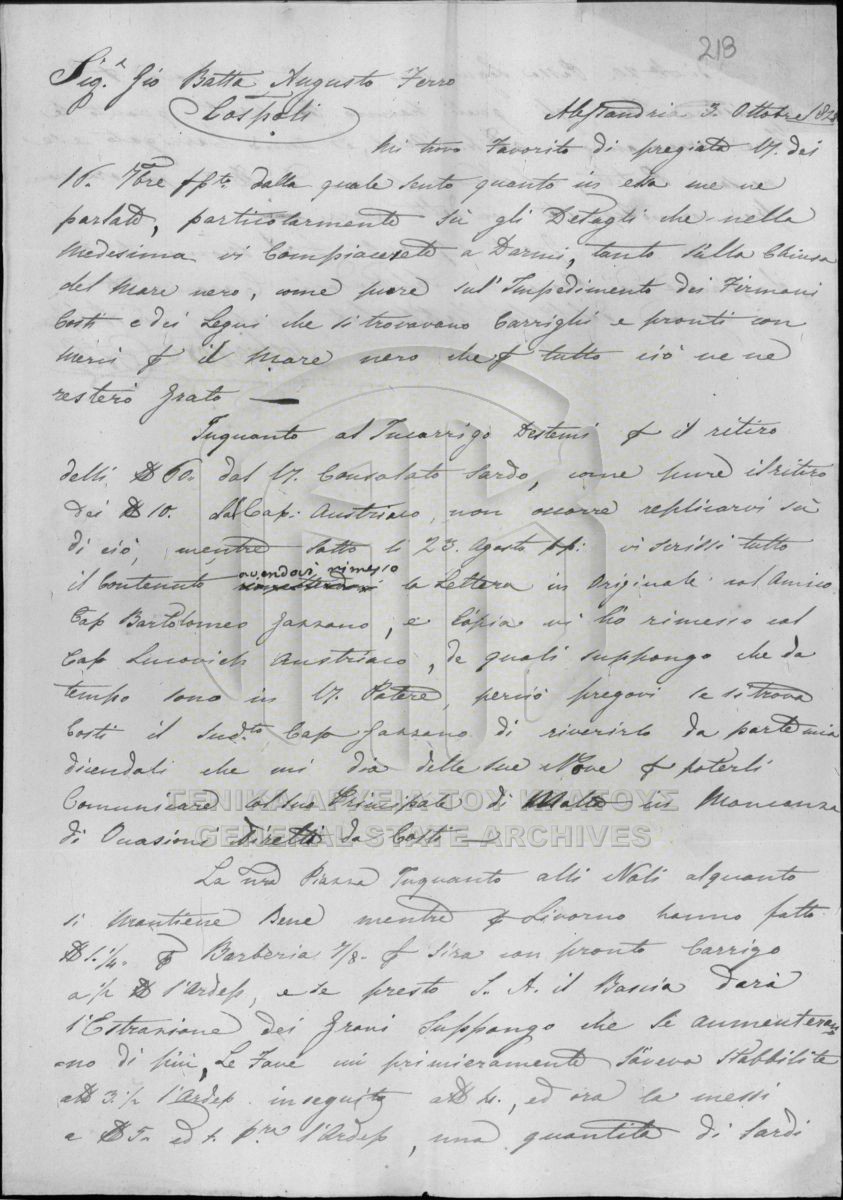 213
Sig.r Gio Batta Augusto Ferro
Cospoli
Alessandria 3. Ottobre 1828
Mi trovo Favorito di pregiata V. dei
16. 7bre dalla quale sento quanto in essa me ne
parlate, particolarmente sù gli Detagli che nella
Medesima vi Compiacerete a Darmi, tanto sulla Chiusa
del Mare nero, come pure sul' Impedimento dei Firmani
Costi e dei Legni che si trovavano Carrighi e pronti con
Merci il Mare nero che tutto ciò ve ne
resterò grato —
Inquanto al Incarrigo Destemi il ritiro
delli 60. dal V. Consolato Sardo, come pure il ritiro
dei 10. dal Cap: Austriaco, non ocorre replicarvi sù
di ciò, mentre sotto li 23. Agosto pp: vi scrissi tutto
il Contenuto avendovi rimesso la Lettera in Originale col Amico
Cap Bartolomeo Gazzano, e Cópia vi hò rimesso col
Cap Lucovich Austriaco, de quali suppongo che da
tempo sono in V. Potere, perciò pregovi se si trova
Costi il sud.to Cap Gazzano di riverirlo da parte mia
dicendoli che mi dia delle sue Nove poterli
Comunicare al suo Principale di Malta in Mancanza
di Ocasioni Dirette da Costi —
La nra Piazza Inquanto alli Noli alquanto
si Mantiene Bene mentre Livorno hanno fatto
1.1/4. Barberia 7/8. Sira con pronto Carrigo
a 1/2 l'Ardep, e se presto S. A. il Bascia darà
l'Estrazione dei Grani Suppongo che si aumenteran-
-no di più, Le Fave mi primieramente s'aveva Stabbilite
a 3.1/2 l'Ardep. inseguito a 4., ed ora la messi
a 5. ed l'Ardep, una quantità di Sardi
ΓΕΝΙΚΑ ΑΡΧΕΙΑ ΤΟΥ ΚΡΑΤΟΥΣ
GENERAL STATE ARCHIVES